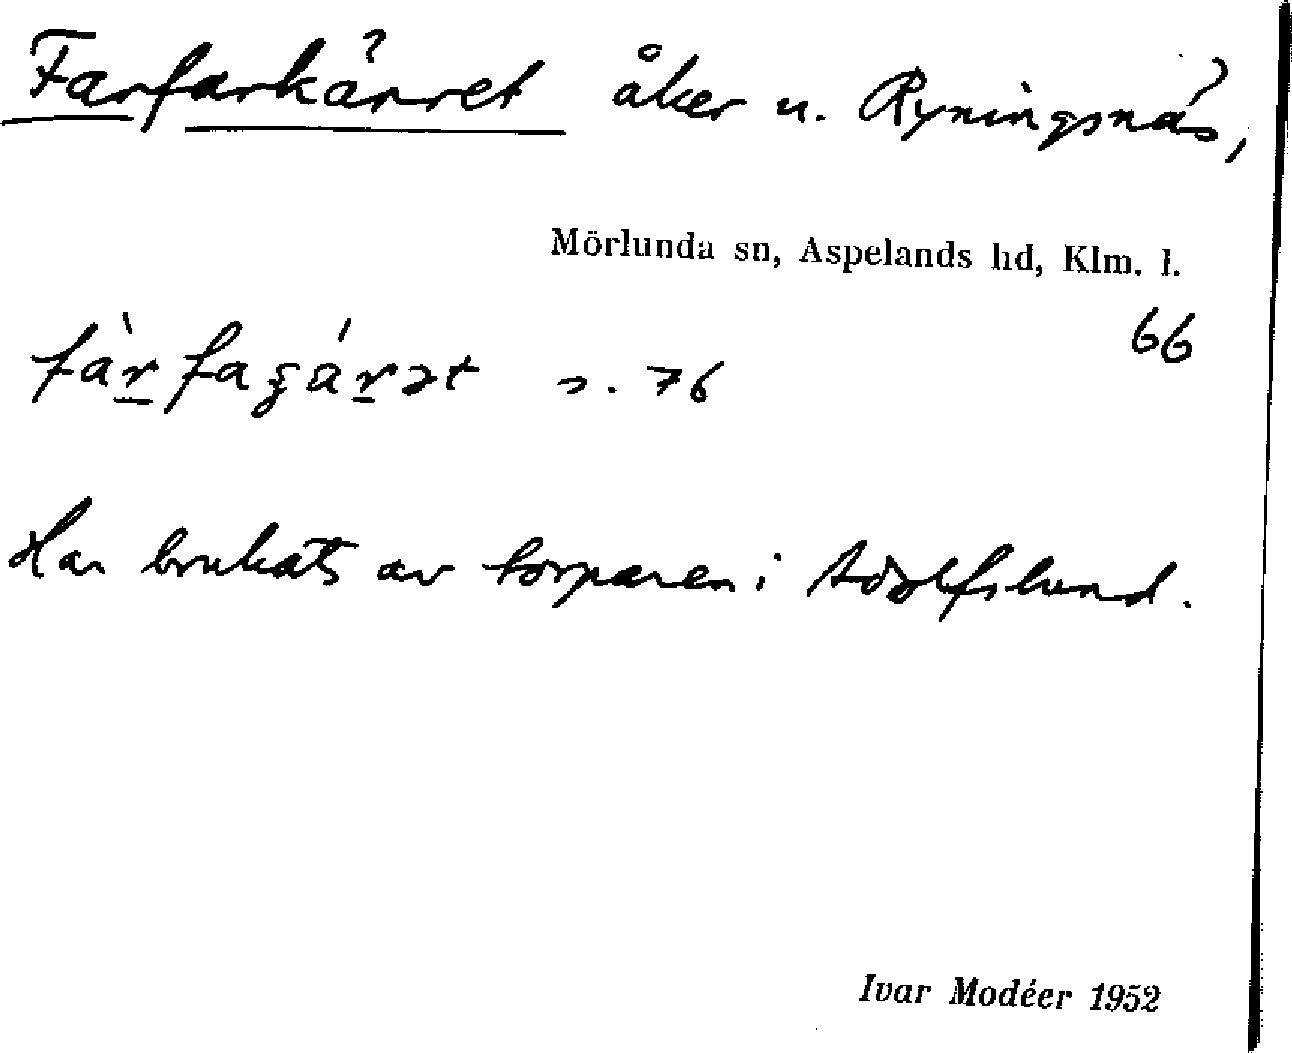 Farfarkärret åker u. Ryningsnäs,
Mörlunda sn, Aspelands hd, Klm. l.
66
s. 76
Har brukats av torparen i Adolfslund.
Ivar Modéer 1952